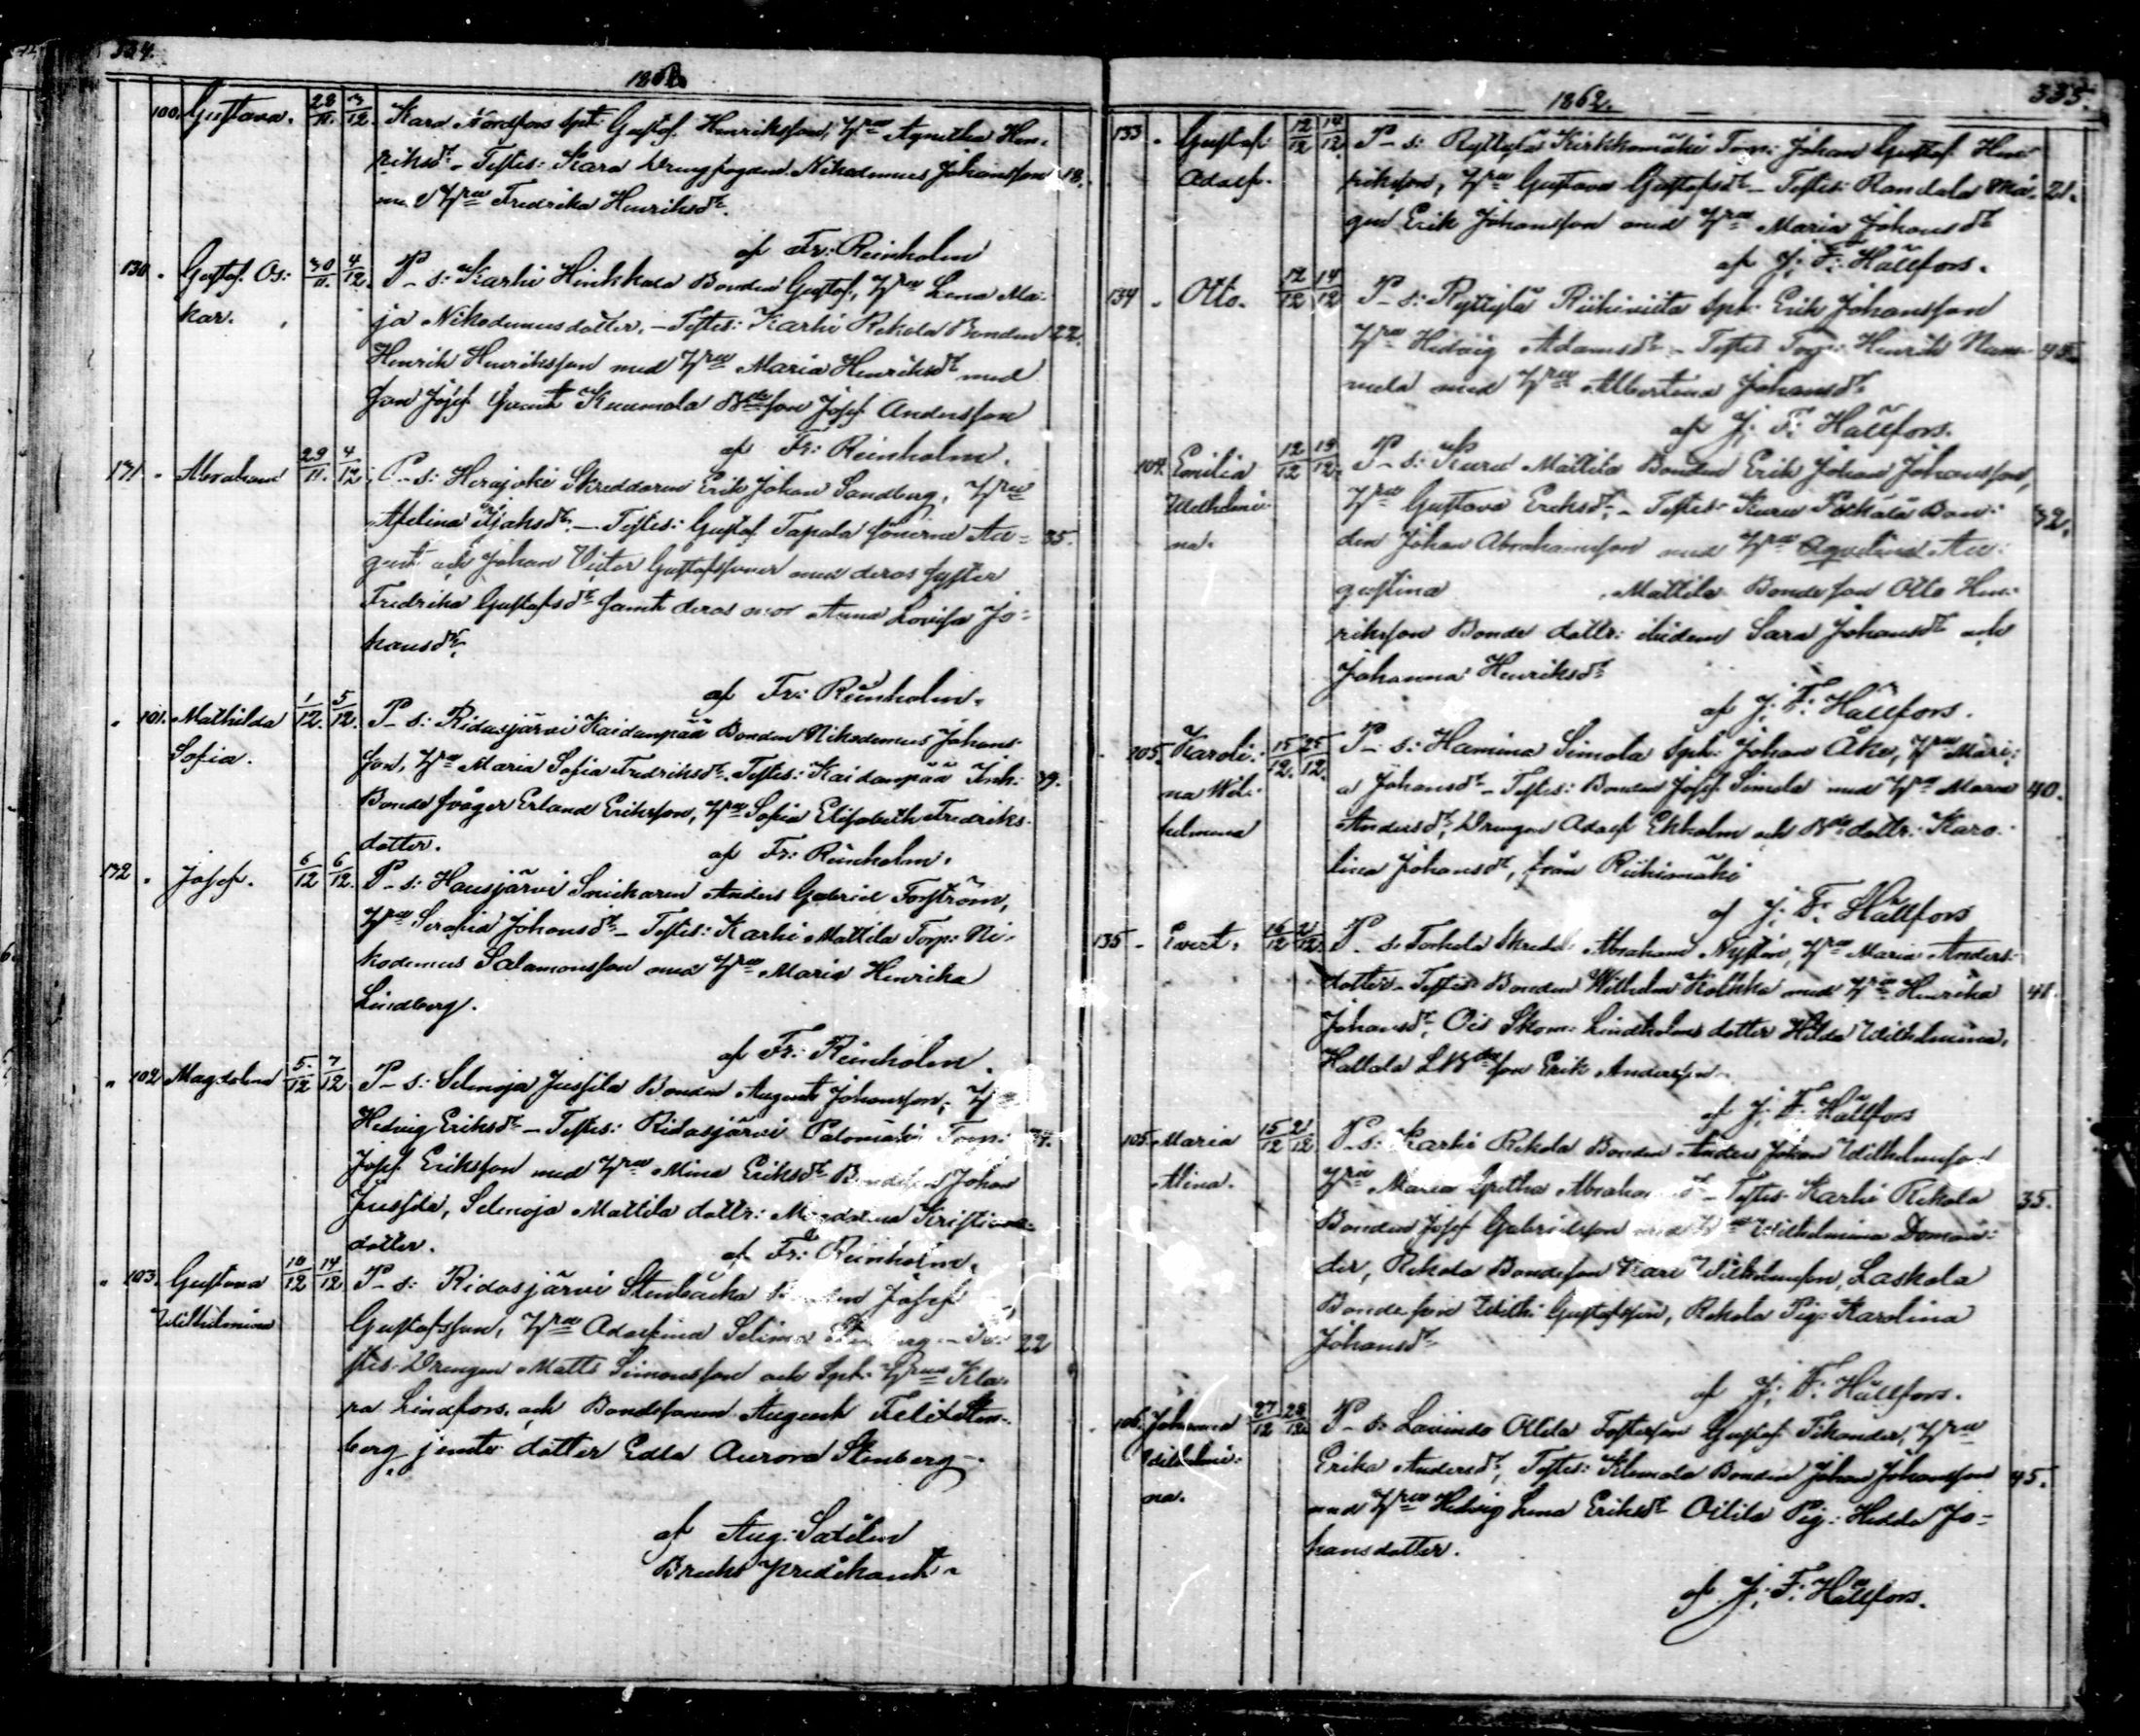 334.
1862.
100. Gustava. 28/11. 3/12. Kara Nordfors Spt: Gustaf Henriksson, Hru Agnetha Hen-
riksdr. - Testes: Kara Drengfogden Nikodemus Johansson 18.
med Hru Fredrika Henriksdr.
af Fr: Reinholm
130. Gustaf Os: 30/11. 4/12. P-s: Karhi Hinkkala Bonden Gustaf, Hru Lena Ma-
kar. ja Nikodemusdotter. - Testes: Karhi Rekola Bonden 22.
Henrik Henriksson med Hru Maria Henriksdr med
son Josef samt Kuumola Bdeson Josef Andersson
af Fr: Reinholm.
131 - Abraham 29/11. 4/12. P-s: Herajoki Skreddaren Erik Johan Sandberg, Hru
Afelina - Testes: Gustaf Tapala sönerna Au- 35.
gust och Johan Victor Gustafssöner med deras syster
Fredrika Gustafsdr samt deras mor Anna Lovisa Jo-
hansdr.
af Fr: Reinholm.
101. Mathilda 1/12. 5/12. P-s: Ridasjärvi Kaidanpää Bonden Nikodemus Johans-
Sofia. son, Hru Maria Sofia Fredriksdr. Testes: Kaidanpää Inh: 39.
Bonde svåger Erland Eriksson, Hru Sofia Elisabeth Fredriks-
dotter.
af Fr: Reinholm.
132 - Josef. 6/12 6/12. P-s: Hausjärvi Snickaren Anders Gabriel Forström,
Hru Serafia Johansdr - Testes: Karhi Mattila Torp: Ni-
kodemus Salamonsson med Hru Maria Henrika
Lindberg.
af Fr: Reinholm.
102. Magdalena 5/12 7/12 P-s: Selmoja Jussila Bonden August Johansson, Hru
Hedvig Eriksdr - Testes: Ridasjärvi Palomäki Torp:
Josef Eriksson med Hru Mina Eriksdr Bondeson Johan
Jussila, Selmoja Mattila dottr: Magdalena Kristians-
dotter.
af Fr: Reinholm.
103. Gustava 10/12 14/12 P-s: Ridasjärvi Stenbacka Bonden Josef
Wilhelmina Gustafsson, Hru Adolfina Selima Stenberg - Te- 22
stes: Drengen Matts Simonsson och Spt: Hru Kla-
ra Lindfors, och Bondesonen August Felix Sten-
berg jemte dotter Edla Aurora Stenberg -
af Aug: Sadelin
Bruks predikant
335.
1862.
133 - Gustaf 12/12 14/12. P-s: Ryttylä Kirkkomäki Torp: Johan Gustaf Hen-
Adolf. riksson, Hru Gustava Gustafsdr - Testes: Randala Må- 21.
gen Erik Johansson med Hru Maria Johansdr
af J: F: Hällfors.
134 - Otto. 12/12 14/12 P-s: Ryttylä Riihiviita Spt: Erik Johansson
Hru Hedvig Adamsdr - Testes Torp: Henrik Num-
mela med Hru Albertina Johansdr
af J: F: Hällfors.
104. Emilia 12/12 19/12. P-s: Kuru Mattila Bonden Erik Johan Johansson,
Wilhelmi- Hru Gustava Eriksdr, - Testes: Kuru Bon- 32.
na. den Johan Abrahamsson med Hru Au-
gustina Mattila Bondeson Otto Hen-
riksson Bonde dottr: ibidem Sara Johansdr och
Johanna Henriksdr
af J: F: Hällfors.
105. Karoli- 15/12. 25/12. P-s: Hamina Simola Spt: Johan Åke, Hru Mari-
na Wil- a Johansdr - Testes: Bonden Josef Simola med Hru Maria 40.
helmina Andersdr, Drengen Adolf Ekholm och Bdedottr: Karo-
lina Johansdr, från Riihimäki
af J: F: Hällfors
135 - Evert. 16/12 21/12. P-s: Torhola Skredd: Abraham Nysten, Hru Maria Anders-
dotter - Testes Bonden Wilhelm Kolkka med Hru Henrika 41.
Johansdr, Ois Skom: Lindholms dotter Hilda Wilhelmina,
Hallala Bdeson Erik Andersson
af J: F: Hällfors
105. Maria 15/12 21/12 P-s: Karhi Rekola Bonden Anders Johan Wilhelmsson
Alina. Hru Maria Gretha Abrahamsdr - Testes Karhi Rekola 35.
Bonden Josef Gabrielsson med Hru Wilhelmina Doman-
der, Rekola Bondeson Karl Wilhelmsson, Laskala
Bondeson Wilh: Gustafsson, Rekola Pig: Karolina
Johansdr
af J: F: Hällfors.
106. Johanna 27/12 28/12. P-s: Lavinda Ollila Fosterson Gustaf Tikander, Hru
Wilhelmi- Erika Andersdr, Testes: Klemola Bonden Johan Johansson 45.
na. med Hru Hedvig Lena Eriksdr Oilila Pig: Hedda Jo-
hansdotter.
af J: F: Hällfors.